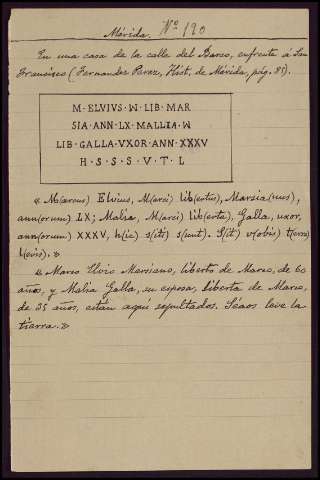 Mérida. Nº 120
En una casa de la calle del Barco, enfrente á San
Francisco (Fernandez Perez, Hist. de Mérida, pág. 81).
M·ELVIUS·W·LIB·MAR
SIA·ANN·LX·MALLIA·W
LIB·GALLA·VXOR·ANN·XXXV
H·S·S·S·V·T·L
« M(arcus) Elvius, M(arci) lib(ertus), Marsia(nus),
ann(orum) LX; Malia, M(arci) lib(erta), Galla, uxor,
ann(orum) XXXV, h(ic) s(iti) s(unt). S(it) v(obis) t(erra)
l(evis). »
« Marco Elvio Marsiano, liberto de Marco, de 60
años, y Malia Galla, su esposa, liberta de Marco,
de 35 años, están aquí sepultados. Séaos leve la
tierra. »